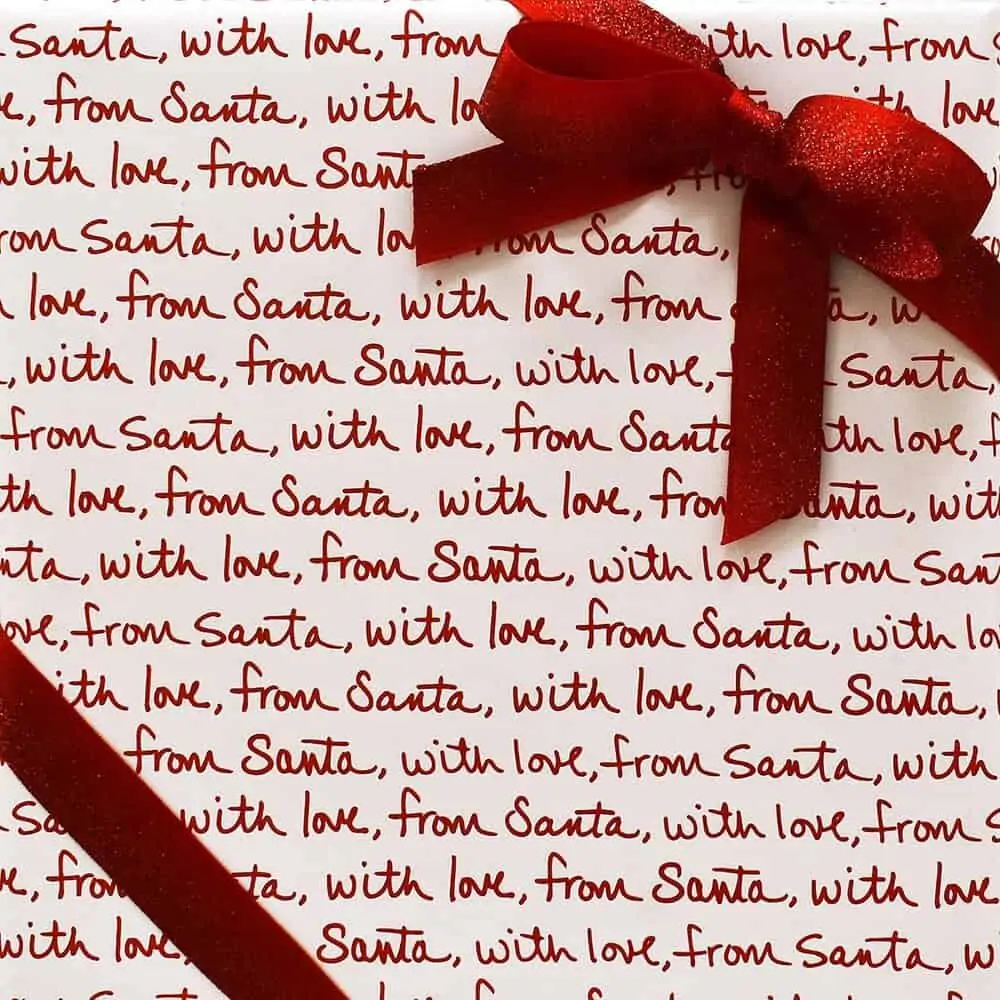 Santa, with love, from with love, from
from Santa, with love
with love, from
Santa, with from Santa,
love, from Santa, with love, from
, with love, from Santa, with love, Santa,
from Santa, with love, from love,
love, from Santa, with love,
, with love, from Santa, with love, from
from Santa, with love, from Santa, with
love, from Santa, with love, from Santa,
from Santa, with love, from Santa, with
with love, from Santa, with love, from
with love, from Santa, with love
with love Santa, with love, from Santa,